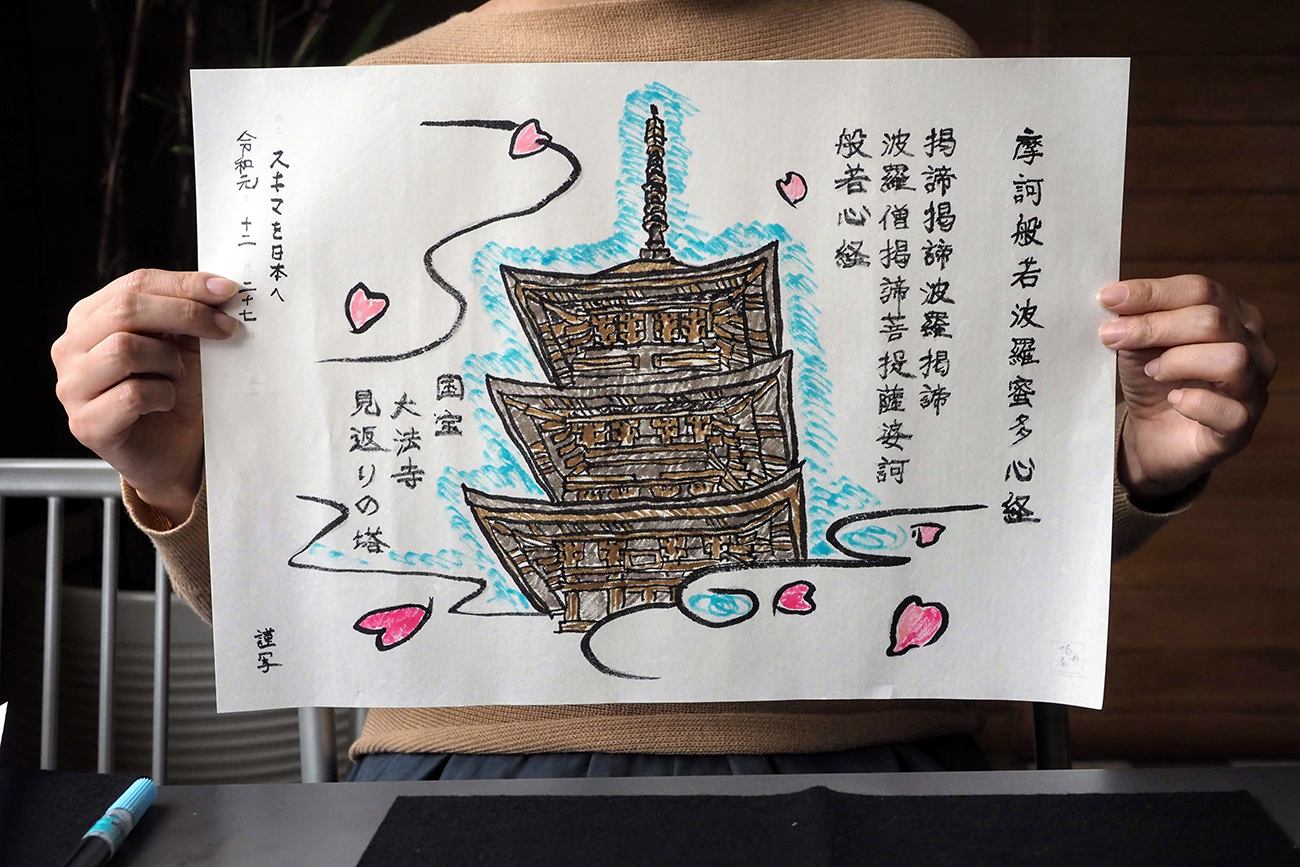 摩訶般若波羅蜜多心経
掲諦掲諦波羅掲諦
波羅僧掲諦菩提薩婆訶
般若心経
国宝
大法寺
見返りの塔
スキマを日本へ
令和元 十二月二十七
謹写